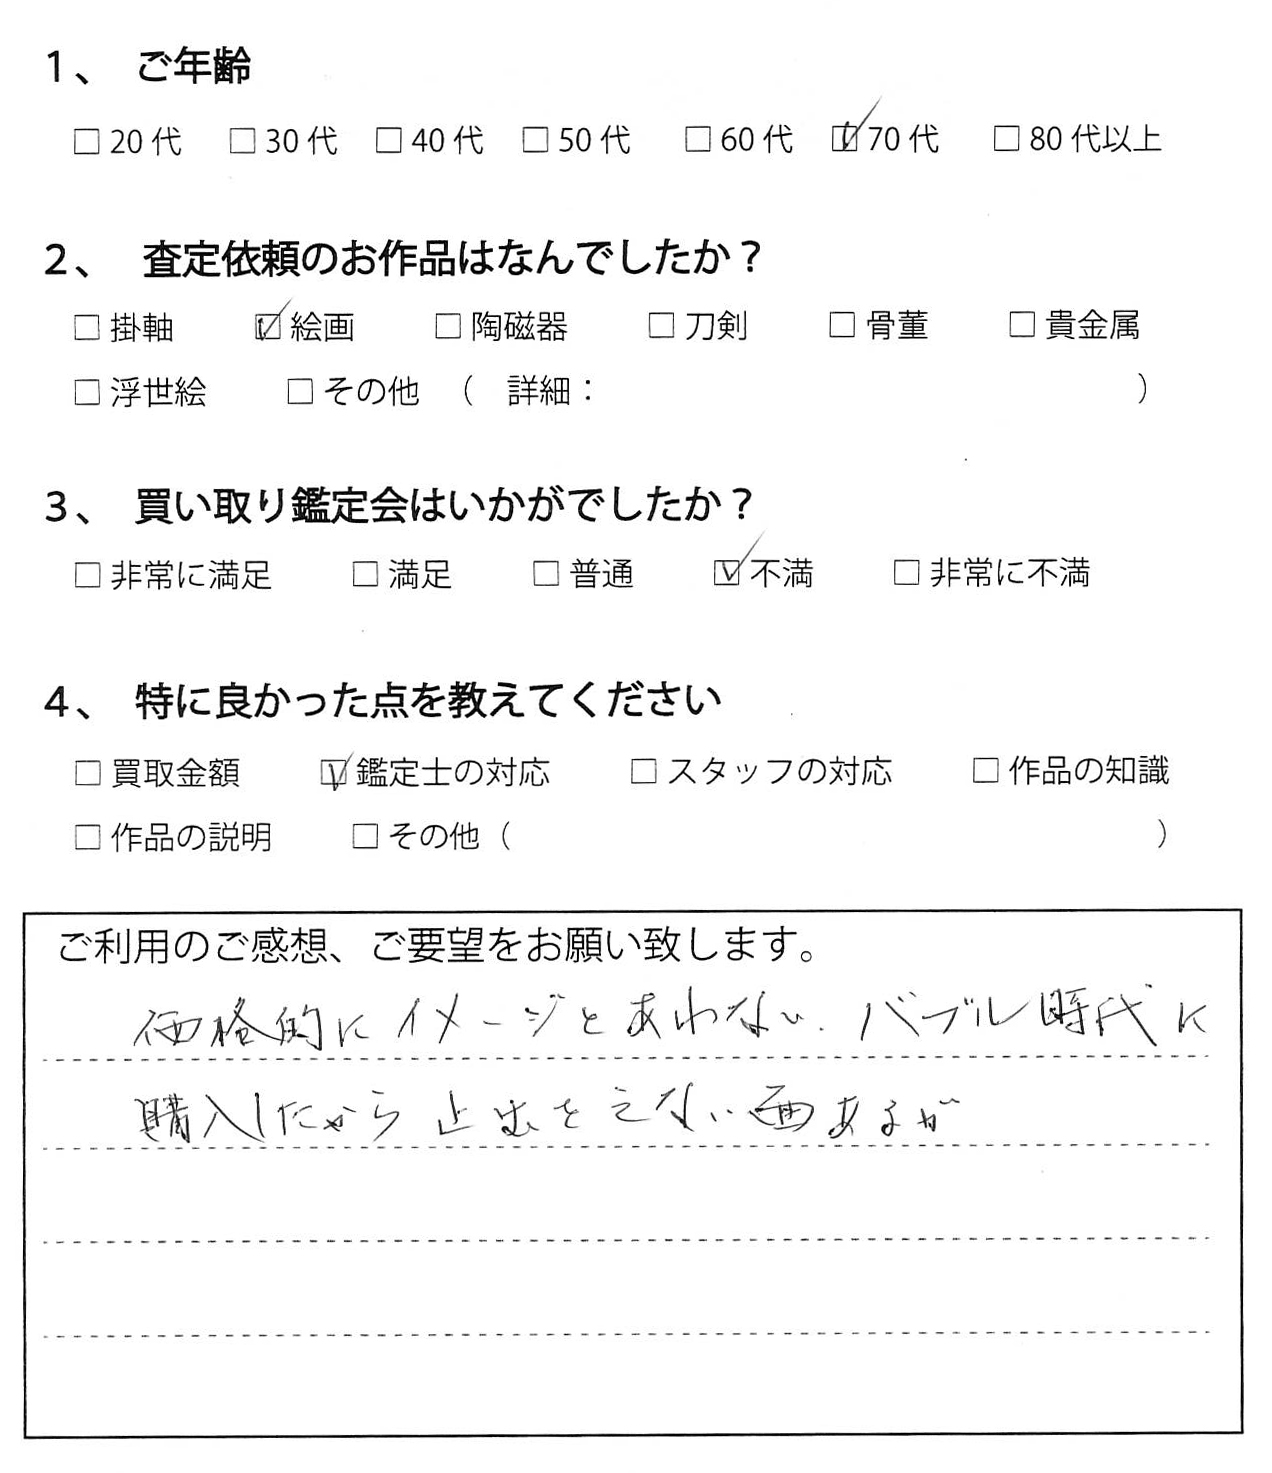 1、 ご年齢
□20代 □30代 □40代 □50代 □60代 ☑70代 □80代以上
2、 査定依頼のお作品はなんでしたか？
□掛軸 ☑絵画 □陶磁器 □刀剣 □骨董 □貴金属
□浮世絵 □その他 （ 詳細： ）
3、 買い取り鑑定会はいかがでしたか？
□非常に満足 □満足 □普通 ☑不満 □非常に不満
4、 特に良かった点を教えてください
□買取金額 ☑鑑定士の対応 □スタッフの対応 □作品の知識
□作品の説明 □その他（ ）
ご利用のご感想、ご要望をお願い致します。
価格的にイメージとあわない. バブル時代に
購入したから止むをえない面あるが